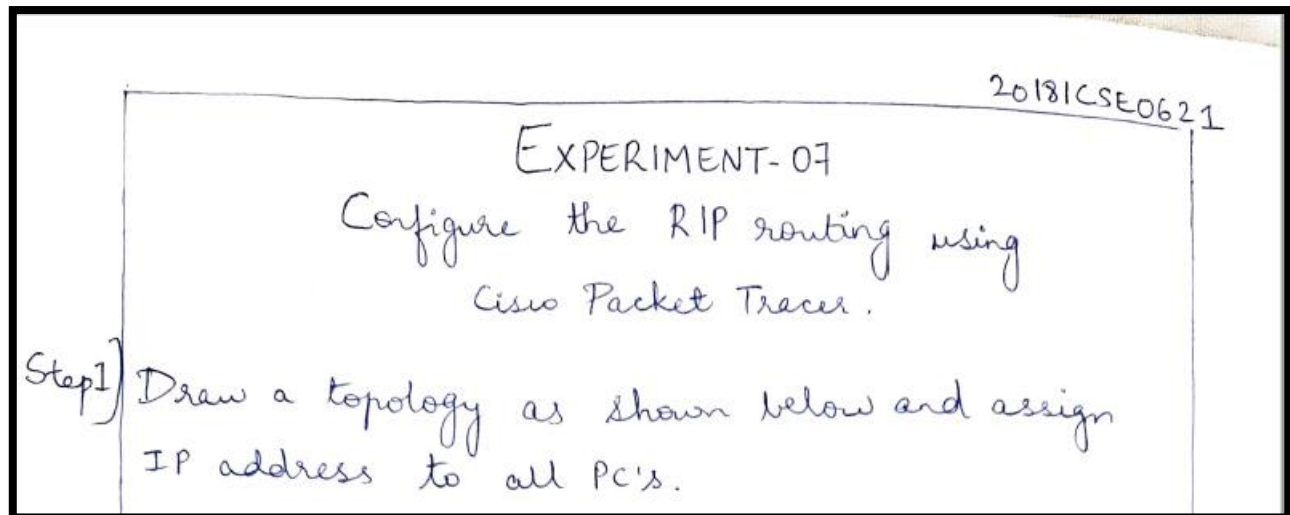 20181CSE0621
EXPERIMENT-07
Configure the RIP routing using
Cisco Packet Tracer.
Step1) Draw a topology as shown below and assign
IP address to all PC's.